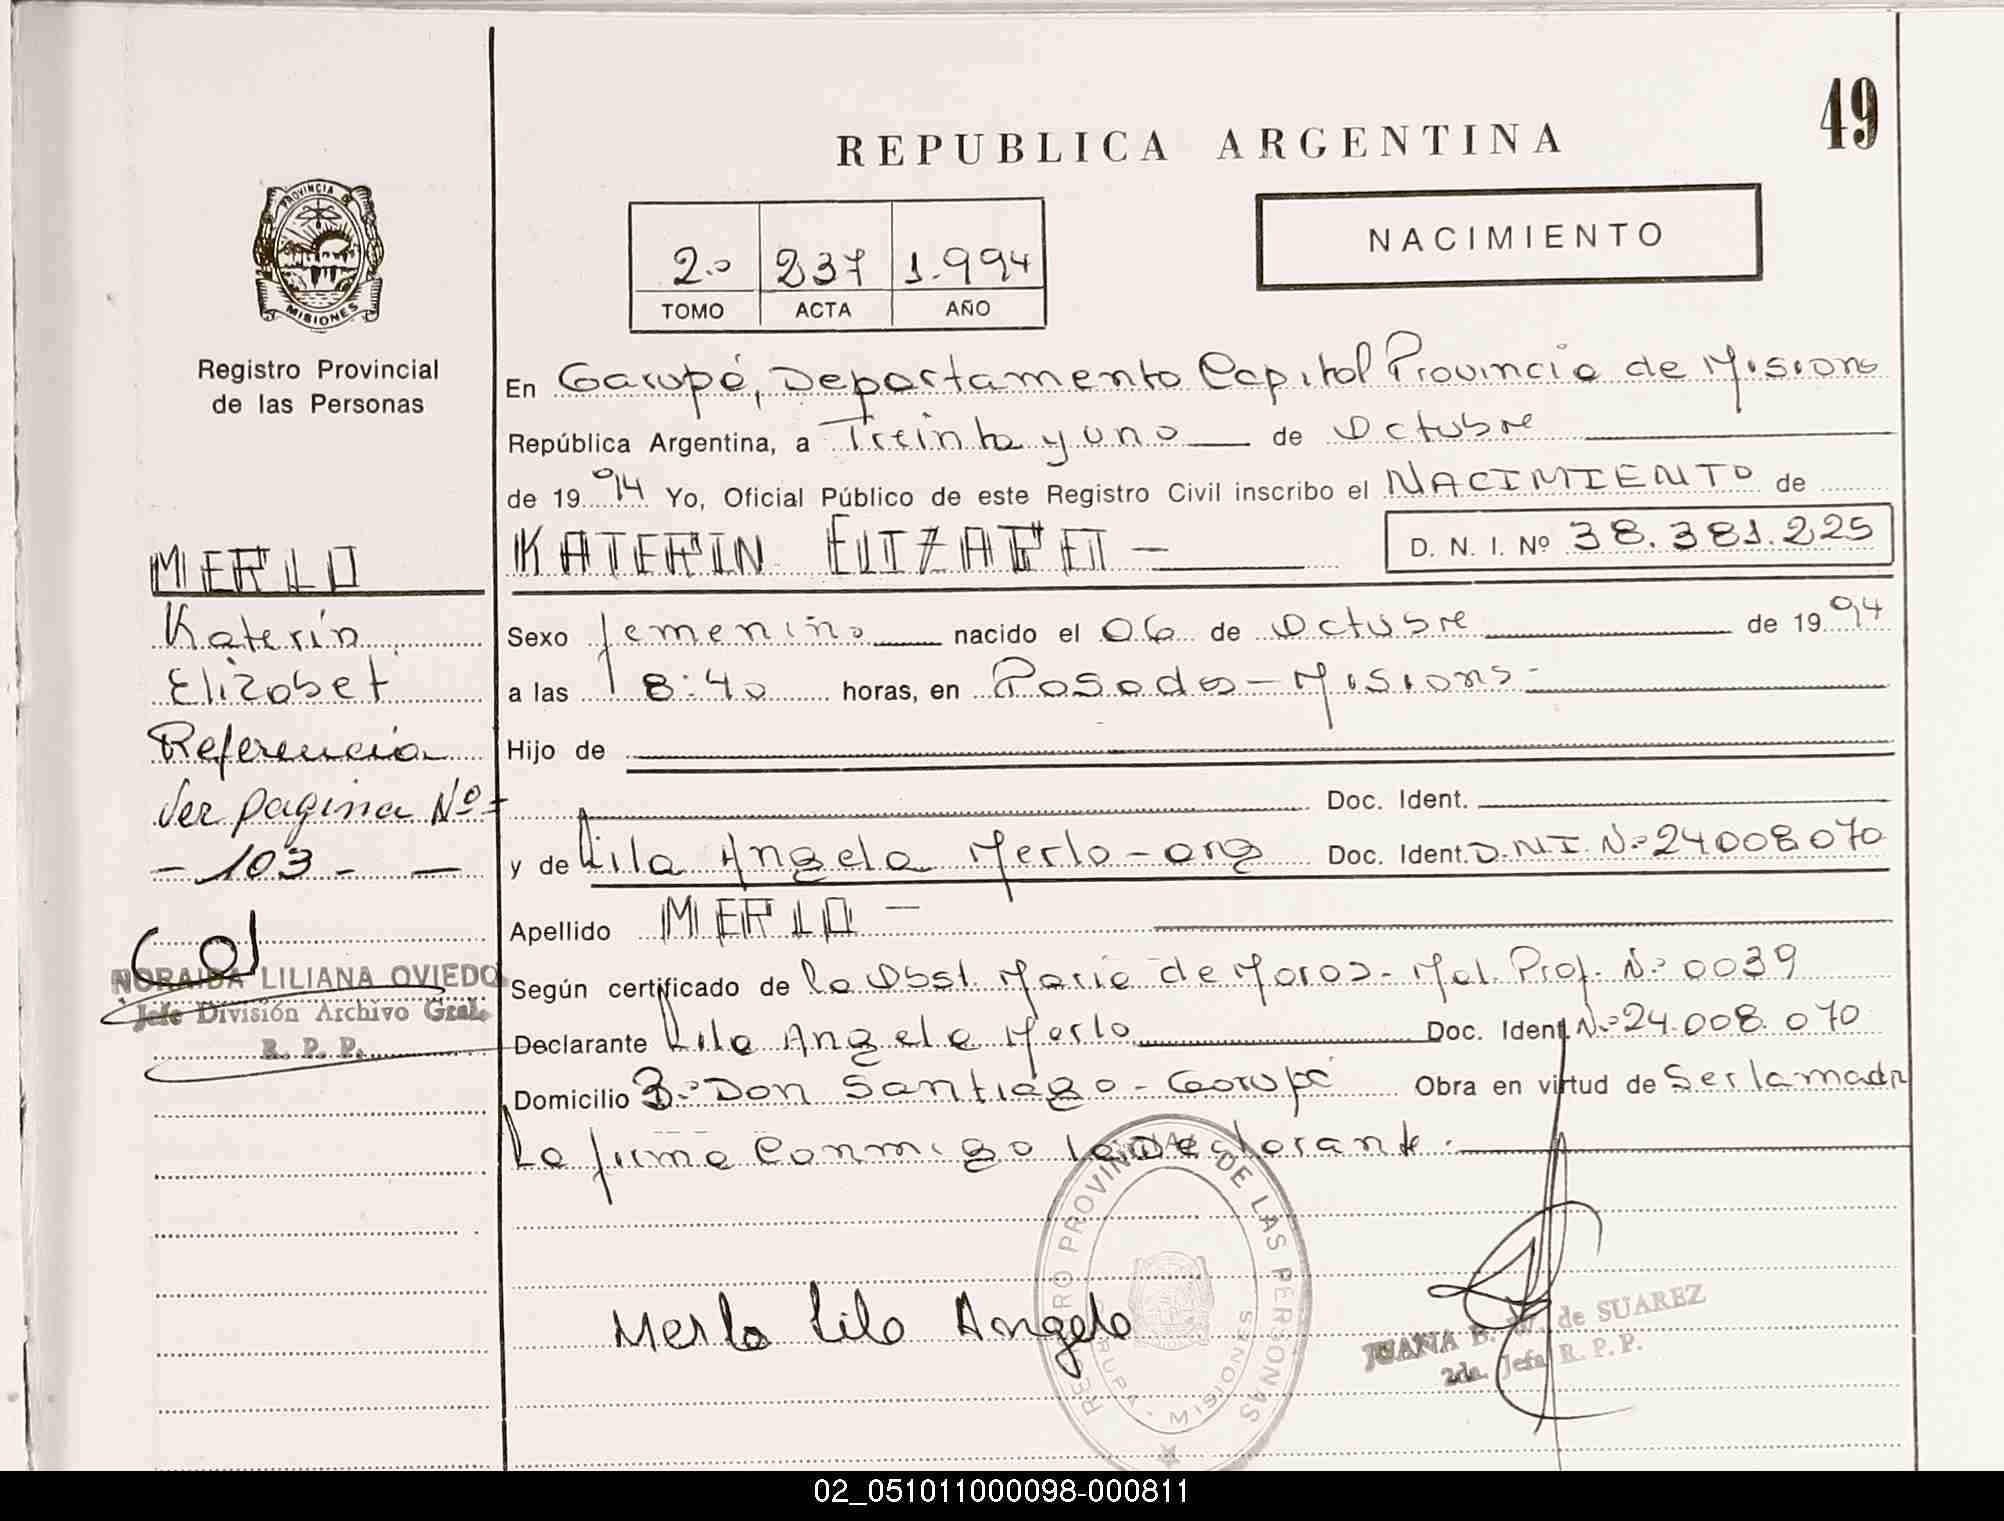 49
REPUBLICA ARGENTINA
NACIMIENTO
2º 237 1.994
TOMO ACTA AÑO
PROVINCIA DE
MISIONES
Registro Provincial
de las Personas
En Garupá, Departamento Capital Provincia de Misiones
República Argentina, a Treinta y uno de Octubre
de 1994 Yo, Oficial Público de este Registro Civil inscribo el NACIMIENTO de
KATERIN ELIZABET - D. N. I. Nº 38.381.225
Sexo femenino nacido el 06 de Octubre de 1994
a las 8:40 horas, en Posadas - Misiones -
Hijo de
Doc. Ident.
y de Lila Angela Merlo - arg Doc. Ident. D.N.I. Nº 24008070
Apellido MERLO -
Según certificado de la Obst. Maria de - Mat. Prof. Nº 0039
Declarante Lila Angela Merlo Doc. Ident Nº 24.008.070
Domicilio Bº Don Santiago - Garupá Obra en virtud de Ser la madre
La firma Conmigo la declarante.
MERLO
Katerin
Elizabet
Referencia
Ver pagina Nº=
- 103 - -
NORAIDA LILIANA OVIEDO
Jefe División Archivo Gral.
R. P. P.
Merlo Lila Angela
REGISTRO PROVINCIAL DE LAS PERSONAS
GARUPA - MISIONES
JUANA B. de SUAREZ
2da. Jefa R. P. P.
02_051011000098-000811